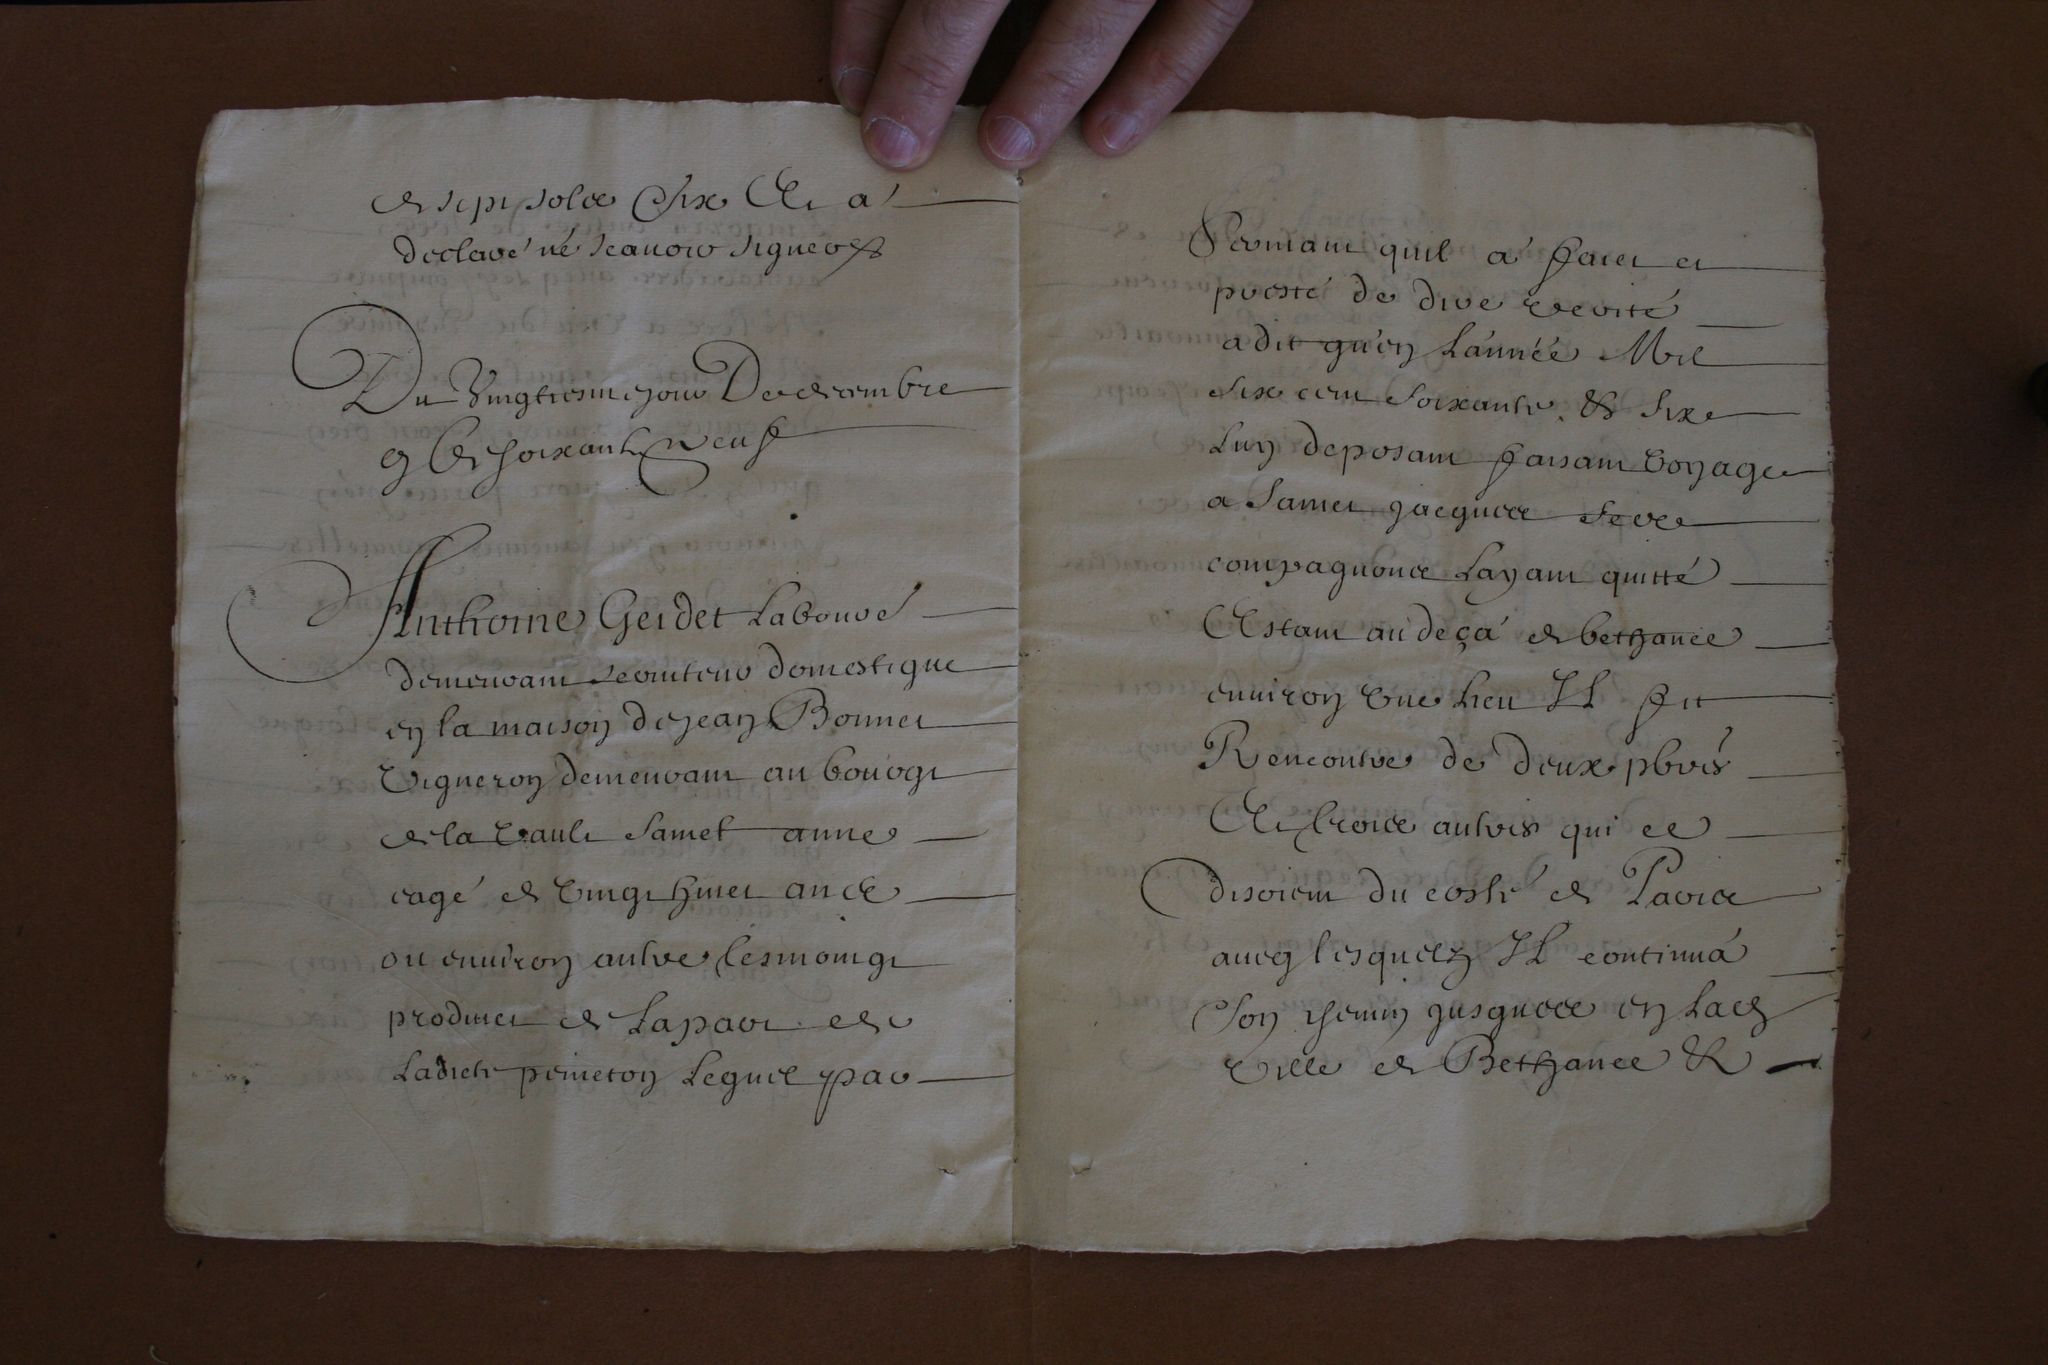 de sept solz six Et a
declaré ne scauoir signer
Du Vingtiesme jour De decembre
g Et soixante neuf
Anthoine Geidet Labouré
demeurant serviteur domestique
en la maison de jean Bonnet
Vigneron demeurant au bourg
de la vault Sainct anne
eagé de vingt huict ans
ou environ aultre tesmoing
produict de La part de
Ladicte peineton Lequel par
Serment quil a faict et
presté de dire verité
a dit qu'en L'année Mil
Six cent Soixante & Six
Luy deposant faisant voyage
a Sainct jacques Ses
compagnons Layant quitté
Estant au deçà de bethance
environ une lieu Il fit
Rencontre de deux pbrēs
Et trois aultres qui se
disoient du costé de Paris
aueq lesquelz Il continua
Son chemin jusques en Lad
ville de Bethance &